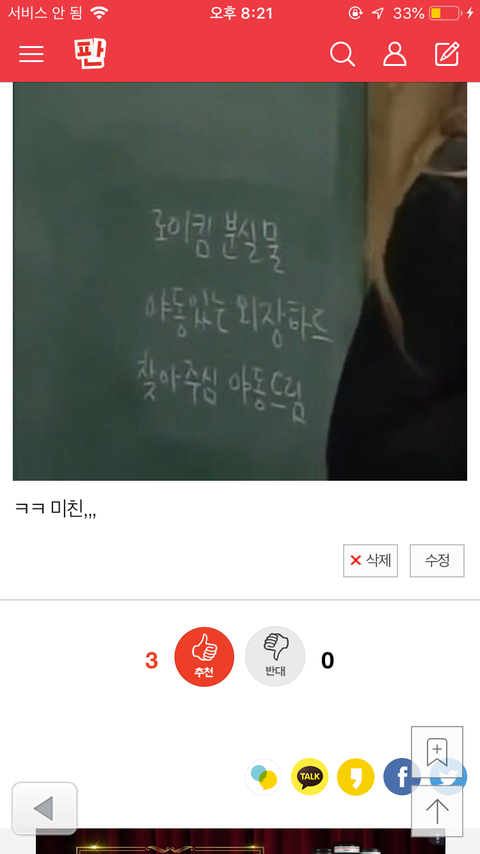 서비스 안 됨 오후 8:21 33%
판
로이킴 분실물
야동있는 외장하드
찾아주심 야동드림
ㅋㅋ 미친,,,
× 삭제 수정
3 추천 반대 0
TALK